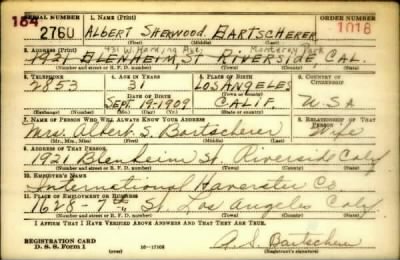 184
SERIAL NUMBER 1. NAME (Print) ORDER NUMBER
2760 ALBERT SHERWOOD BARTSCHERER 1018
(First) (Middle) (Last)
431 W. Harding Ave, Monterey Park
2. ADDRESS (Print)
1921 BLENHEIM, ST RIVERSIDE CAL.
(Number and street or R. F. D. number) (Town) (County) (State)
3. TELEPHONE 4. AGE IN YEARS 5. PLACE OF BIRTH 6. COUNTRY OF CITIZENSHIP
2853 31 LOS ANGELES
DATE OF BIRTH (Town or county)
SEPT. 19-1909 CALIF. U.S.A
(Exchange) (Number) (Mo.) (Day) (Yr.) (State or country)
7. NAME OF PERSON WHO WILL ALWAYS KNOW YOUR ADDRESS 8. RELATIONSHIP OF THAT PERSON
Mrs. Albert S. Bartscherer Wife
(Mr., Mrs., Miss) (First) (Middle) (Last)
9. ADDRESS OF THAT PERSON
1921 Blenheim St. Riverside Calif
(Number and street or R. F. D. number) (Town) (County) (State)
10. EMPLOYER'S NAME
International Harvester Co
11. PLACE OF EMPLOYMENT OR BUSINESS
1628 - 7th St. Los Angeles Calif.
(Number and street or R. F. D. number) (Town) (County) (State)
I AFFIRM THAT I HAVE VERIFIED ABOVE ANSWERS AND THAT THEY ARE TRUE.
REGISTRATION CARD
D. S. S. Form 1 (over) 16-17105 A. S. Bartscherer
(Registrant's signature)